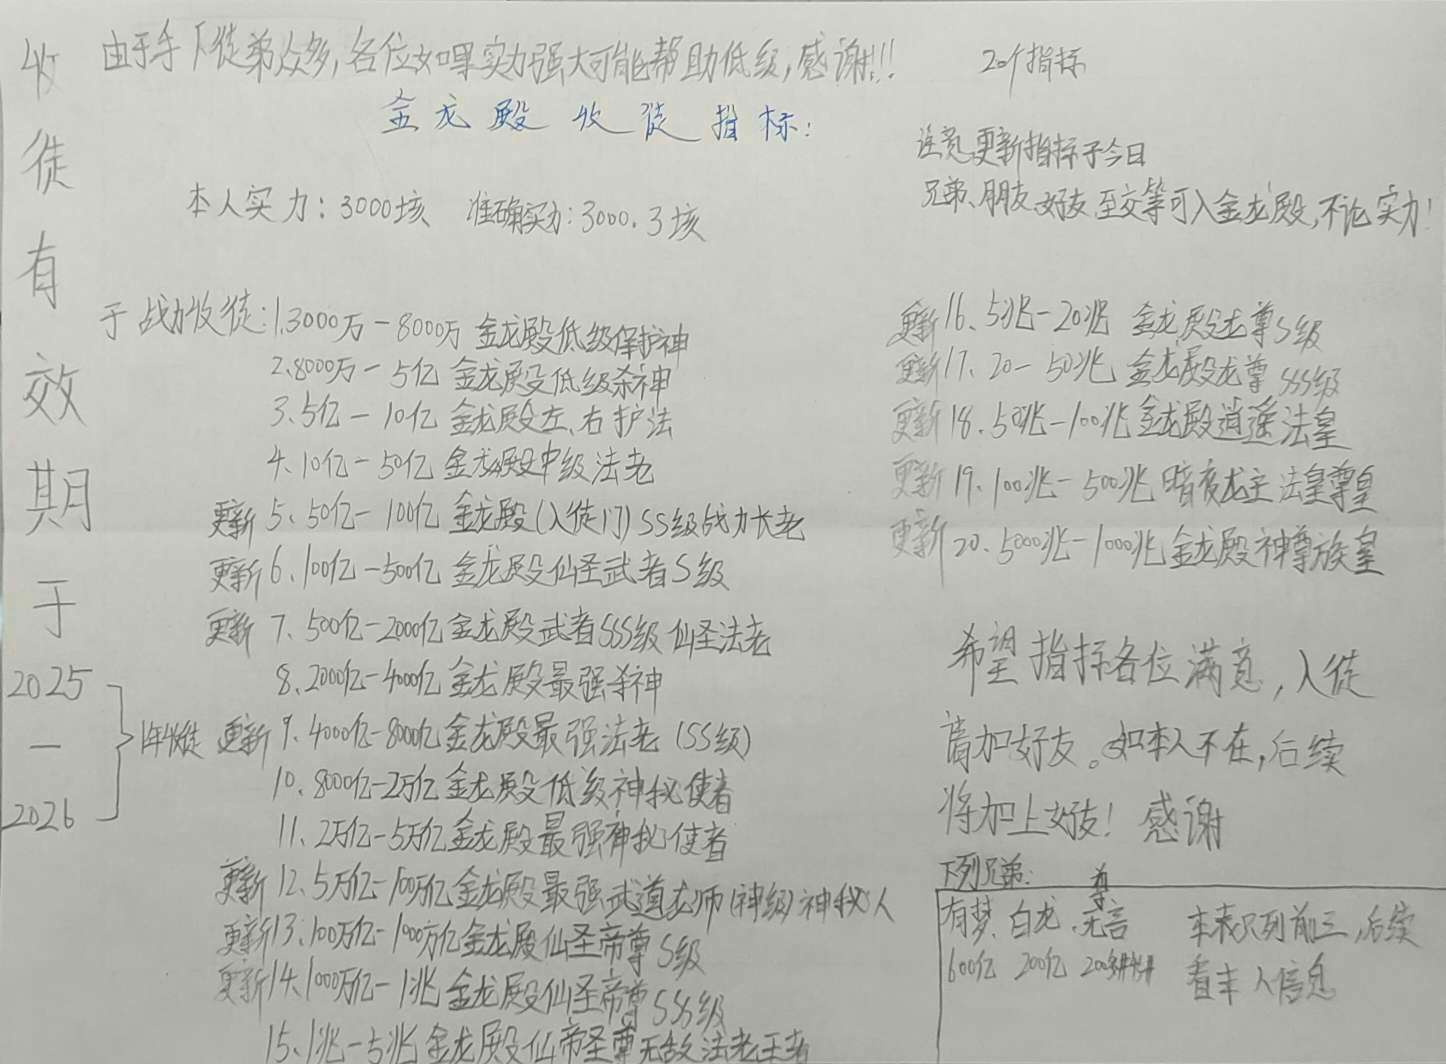 收徒有效期于2025—2026
1年收徒
由于手下徒弟众多,各位如果实力强大可能帮助低级,感谢!!!
金龙殿收徒指标:
本人实力:3000垓 准确实力:3000.3垓
于战力收徒:1.3000万-8000万 金龙殿低级保护神
2.8000万-5亿 金龙殿低级杀神
3.5亿-10亿 金龙殿左、右护法
4.10亿-50亿 金龙殿中级法老
更新5、50亿-100亿 金龙殿(入徒门)SS级战力长老
更新6、100亿-500亿 金龙殿仙圣武者S级
更新 7、500亿-2000亿 金龙殿武者SSS级 仙圣法老
8、2000亿-4000亿 金龙殿最强杀神
更新 9、4000亿-8000亿 金龙殿最强法老(SS级)
10、8000亿-2万亿 金龙殿低级神秘使者
11、2万亿-5万亿 金龙殿最强神秘使者
更新 12、5万亿-100万亿 金龙殿最强武道龙师(神级)神秘人
更新13、100万亿-1000万亿 金龙殿仙圣帝尊S级
更新14、1000万亿-1兆 金龙殿仙圣帝尊SSS级
15、1兆-5兆 金龙殿仙帝圣尊无敌法老王者
20个指标
注意,更新指标于今日
兄弟、朋友、好友、至交等可入金龙殿,不论实力!
更新16、5兆-20兆 金龙殿龙尊S级
更新17、20-50兆 金龙殿龙尊SSS级
更新18、50兆-100兆 金龙殿逍遥法皇
更新19、100兆-500兆 暗夜龙主法皇尊皇
更新20、5000兆-1000兆 金龙殿神尊族皇
希望指标各位满意,入徒
请加好友。如本人不在,后续
将加上好友!感谢
下列兄弟:
有梦、白龙、尊无言
600亿 200亿
本表只列前三,后续
看本人信息